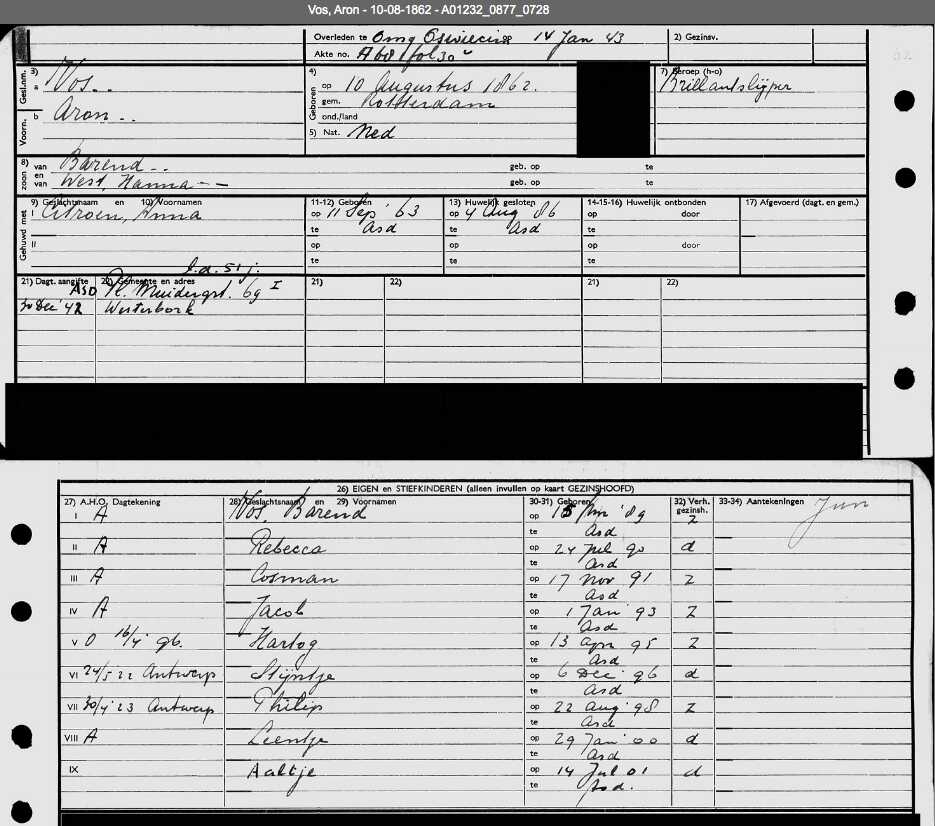 Vos, Aron - 10-08-1862 - A01232_0877_0728
Overleden te Omg Oswiecim op 14 Jan 43 2) Gezinsv.
Akte no. A 68 / fol 30
Gesl.nm. 3) a Vos 4) Geboren op 10 Augustus 1862. 7) Beroep (h-o)
gem. Rotterdam Brillantslijper
Voorn. b Aron ond./land
5) Nat. Ned
8) zoon van Barend geb. op te
en van West, Hanna geb. op te
Gehuwd met 9) Geslachtsnaam en 10) Voornamen 11-12) Geboren 13) Huwelijk gesloten 14-15-16) Huwelijk ontbonden 17) Afgevoerd (dagt. en gem.)
I Citroen, Anna op 11 Sep '63 op 4 Aug '86 op door
te Asd te Asd te
II op op op door
te te te
l.d. 51 j.
21) Dagt. aangifte 22) Gemeente en adres 21) 22) 21) 22)
ASD Pl. Muidergrt. 69 I
30 Dec '42 Westerbork
26) EIGEN en STIEFKINDEREN (alleen invullen op kaart GEZINSHOOFD)
27) A.H.O. Dagtekening 28) Geslachtsnaam en 29) Voornamen 30-31) Geboren 32) Verh. gezinsh. 33-34) Aantekeningen
I A Vos, Barend op 15 '89 Z
te Asd
II A Rebecca op 24 90 d
te Asd
III A Cosman op 17 Nov 91 Z
te Asd
IV A Jacob op 1 Jan 93 Z
te Asd
V O 16/4 gb. Hartog op 13 Apr 95 Z
te Asd
VI 24/5 22 Antwerp Stijntje op 6 Dec 96 d
te Asd
VII 30/4 '23 Antwerp Philip op 22 Aug 98 Z
te Asd
VIII A Leentje op 29 Jan 00 d
te Asd
IX Aaltje op 14 Jul 01 d
te Asd.